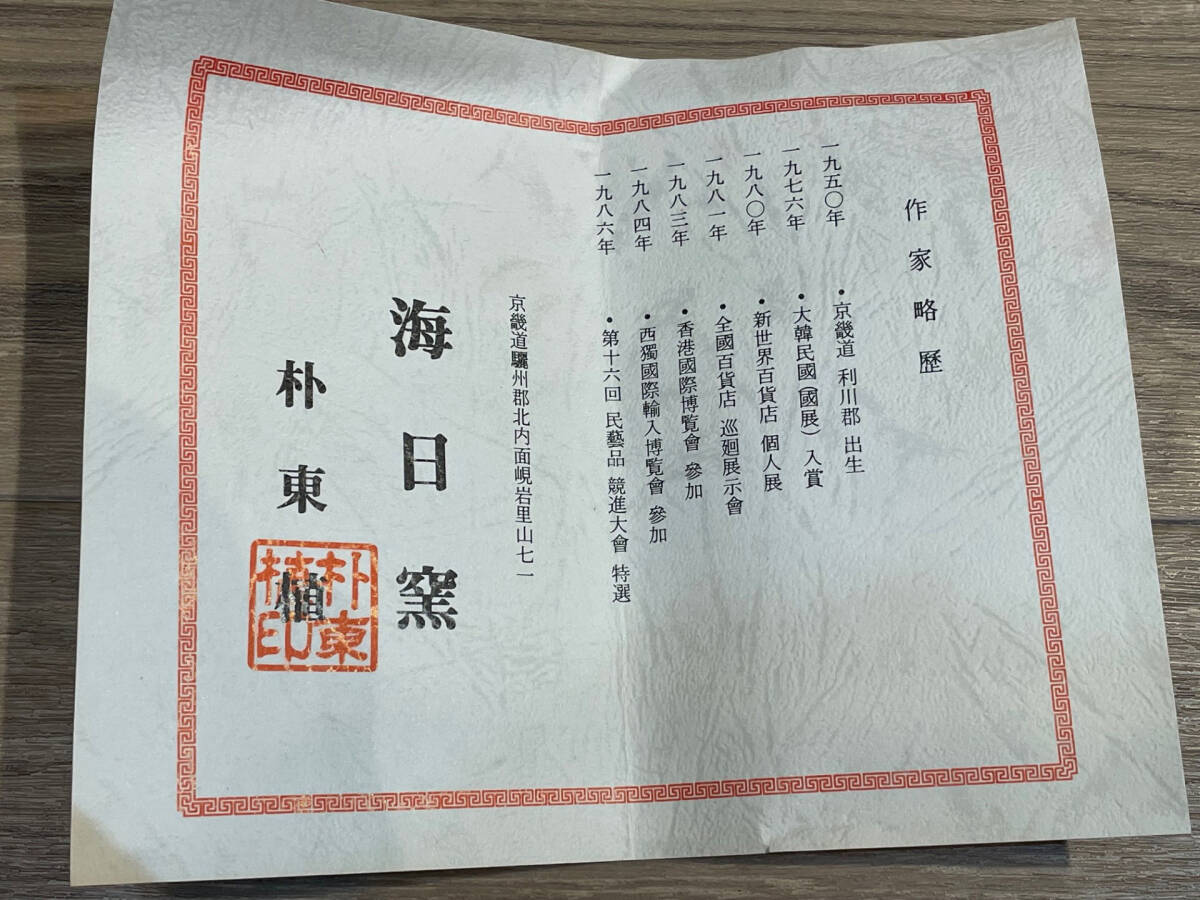 作家略歷
一九五〇年 • 京畿道 利川郡 出生
一九七六年 • 大韓民國(國展) 入賞
一九八〇年 • 新世界百貨店 個人展
一九八一年 • 全國百貨店 巡廻展示會
一九八三年 • 香港國際博覧會 參加
一九八四年 • 西獨國際輸入博覧會 參加
一九八六年 • 第十六回 民藝品 競進大會 特選
京畿道驪州郡北内面峴岩里山七一
海日窯
朴東植
朴東植印